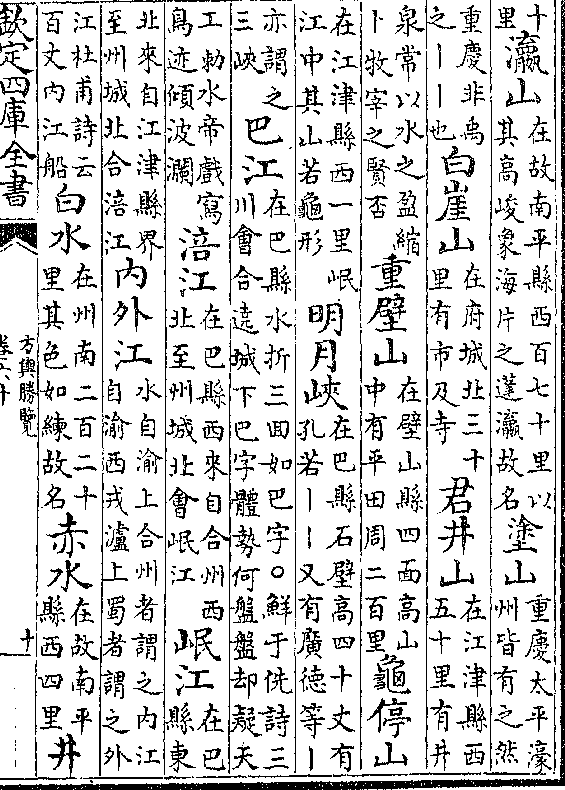 十里瀛山在故南平縣西百七十里以其高峻象海片之蓬瀛故名塗山重慶太平濠州皆有之然
重慶非禹之丨丨也白崖山在府城北三十里有市及寺君井山在江津縣西五十里有井
泉常以水之盈縮卜牧宰之賢否重壁山在壁山縣四面高山中有平田周二百里龜停山
在江津縣西一里岷江中其山若龜形明月峽在巴縣石壁高四十丈有孔若丨丨又有廣德等丨
亦謂之三峽巴江在巴縣水折三回如巴字○鮮于侁詩三川會合遶城下巴字體勢何盤盤却疑天
工勅水帝戲寫鳥迹傾波瀾涪江在巴縣西來自合州西北至州城北會岷江岷江在巴縣東
北來自江津縣界至州城北合涪江內外江水自渝上合州者謂之内江自渝西戎瀘上蜀者謂之外
江杜甫詩云百丈内江船白水在州南二百二十里其色如練故名赤水在故南平縣西四里井
欽定四庫全書
方輿勝覽
卷六十
十